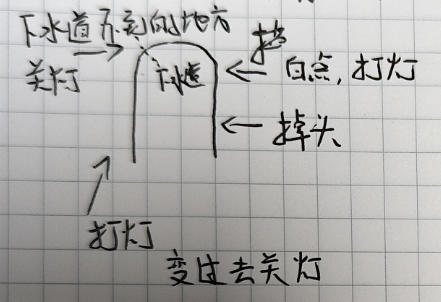 下水道不到的地方
关灯
下水道
白点，打灯
掉头
打灯
变过去关灯